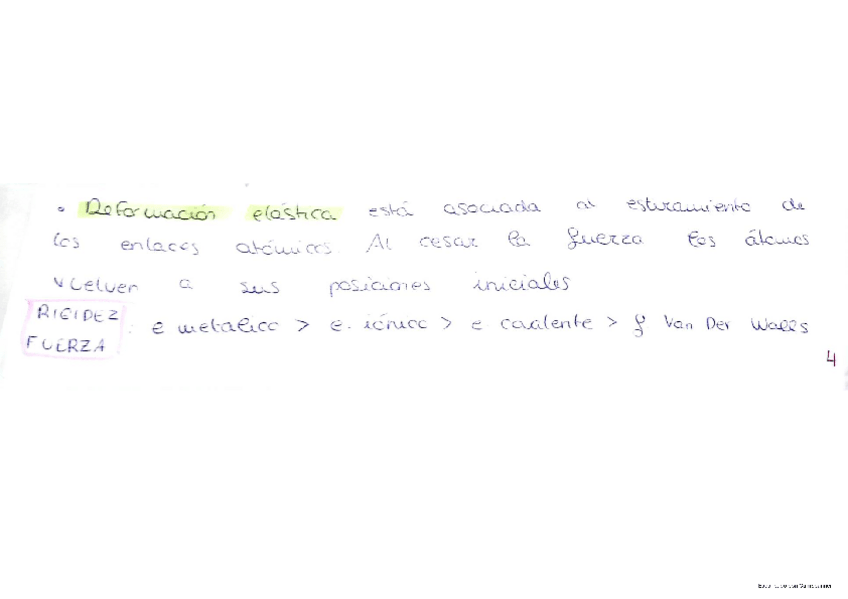 • Deformación elástica está asociada al estiramiento de
los enlaces atómicos. Al cesar la fuerza los átomos
vuelven a sus posiciones iniciales
RIGIDEZ
FUERZA : e metalico > e. iónico > e covalente > f Van Der Walls
4